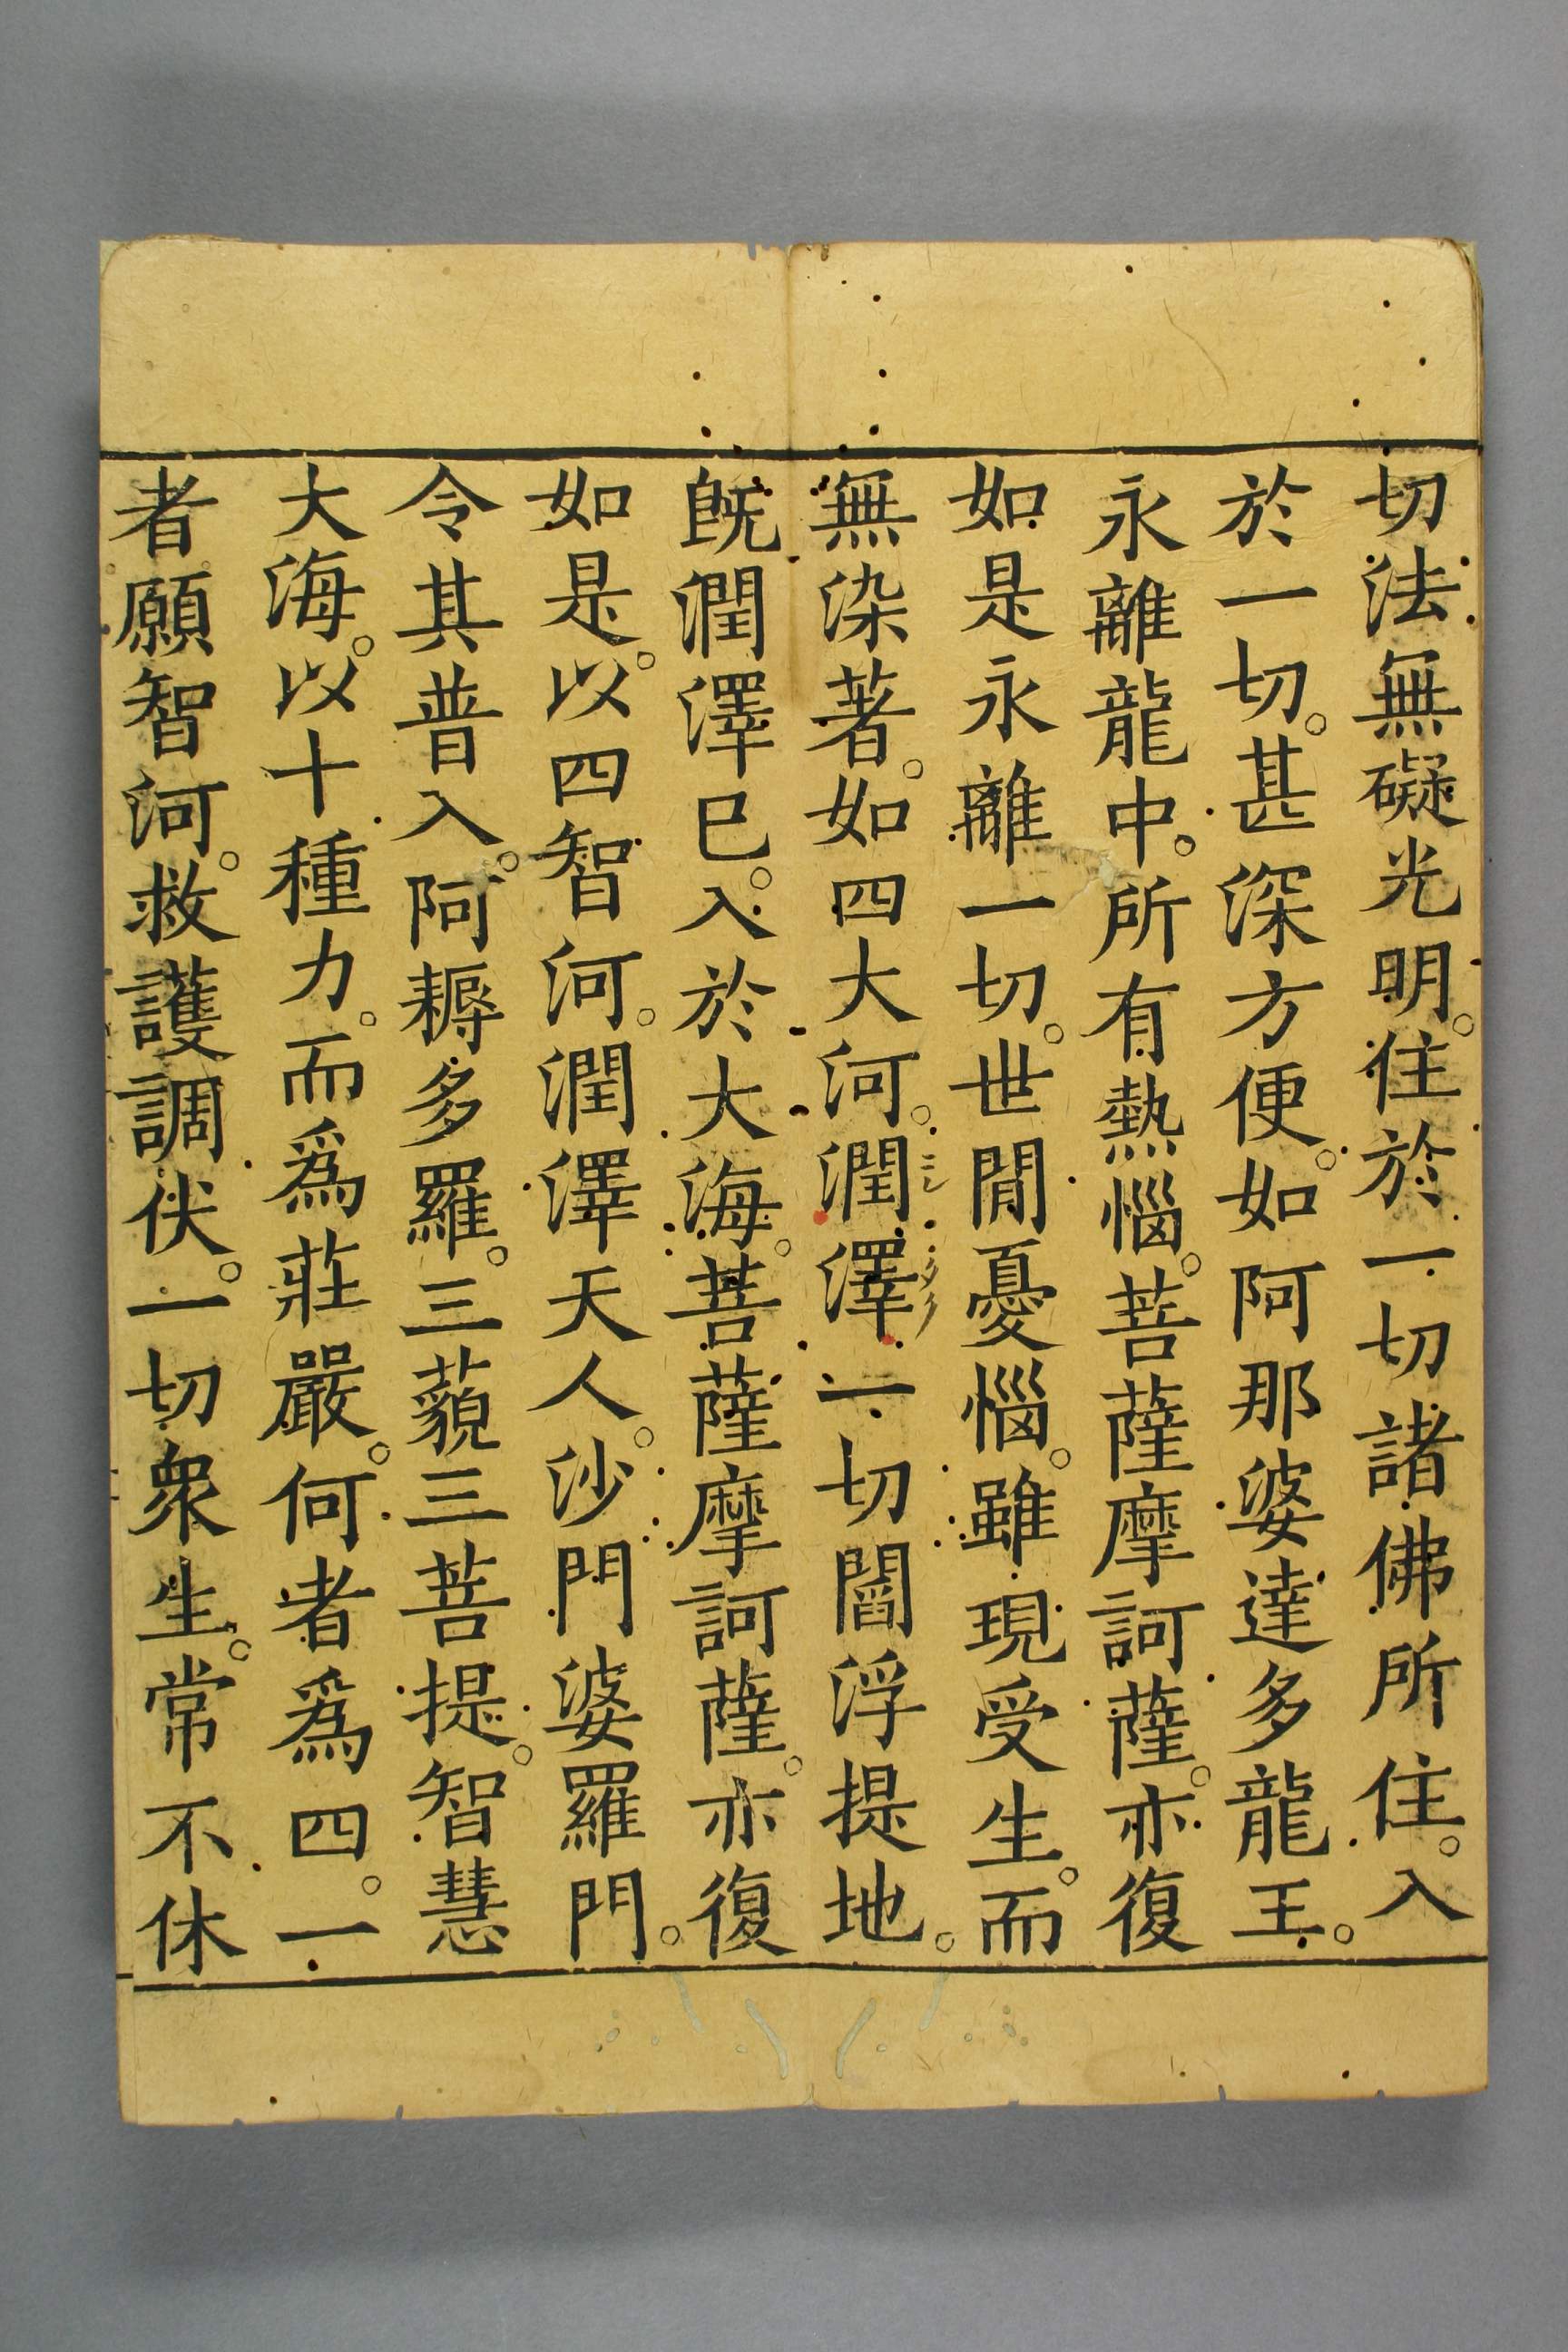 切法無礙光明。住於一切諸佛所住。入
於一切。甚深方便。如阿那婆達多龍王。
永離龍中。所有熱惱。菩薩摩訶薩。亦復
如是永離一切。世間憂惱。雖現受生。而
無染著。如四大河。潤澤一切閻浮提地。
既潤澤已。入於大海。菩薩摩訶薩。亦復
如是。以四智河。潤澤天人。沙門婆羅門。
令其普入。阿耨多羅。三藐三菩提。智慧
大海。以十種力。而爲莊嚴。何者爲四。一
者願智河。救護調伏。一切衆生。常不休